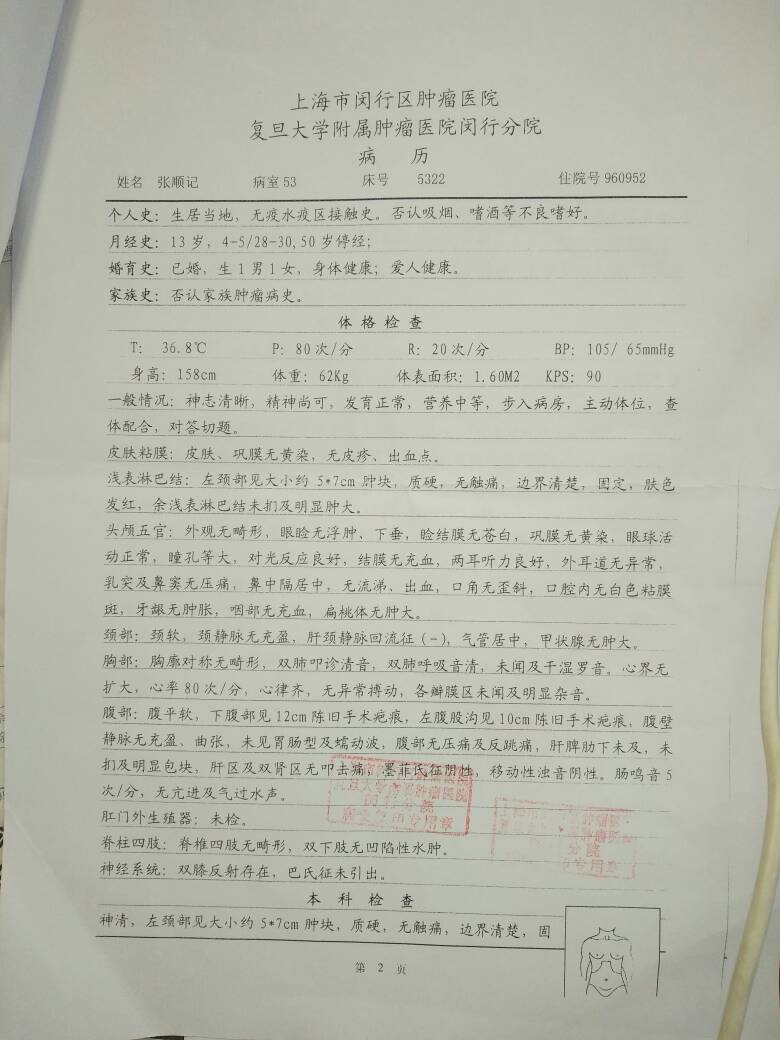 上海市闵行区肿瘤医院
复旦大学附属肿瘤医院闵行分院
病 历
姓名 张顺记 病室 53 床号 5322 住院号 960952
个人史：生居当地，无疫水疫区接触史。否认吸烟、嗜酒等不良嗜好。
月经史：13 岁，4-5/28-30,50 岁停经；
婚育史：已婚，生 1 男 1 女，身体健康；爱人健康。
家族史：否认家族肿瘤病史。
体 格 检 查
T： 36.8℃ P：80 次/分 R：20 次/分 BP：105/ 65mmHg
身高：158cm 体重：62Kg 体表面积：1.60M2 KPS：90
一般情况：神志清晰，精神尚可，发育正常，营养中等，步入病房，主动体位，查
体配合，对答切题。
皮肤粘膜：皮肤、巩膜无黄染，无皮疹、出血点。
浅表淋巴结：左颈部见大小约 5*7cm 肿块，质硬，无触痛，边界清楚，固定，肤色
发红，余浅表淋巴结未扪及明显肿大。
头颅五官：外观无畸形，眼睑无浮肿、下垂，睑结膜无苍白，巩膜无黄染，眼球活
动正常，瞳孔等大，对光反应良好，结膜无充血，两耳听力良好，外耳道无异常，
乳突及鼻窦无压痛，鼻中隔居中，无流涕、出血，口角无歪斜，口腔内无白色粘膜
斑，牙龈无肿胀，咽部无充血，扁桃体无肿大。
颈部：颈软，颈静脉无充盈，肝颈静脉回流征（-），气管居中，甲状腺无肿大。
胸部：胸廓对称无畸形，双肺叩诊清音，双肺呼吸音清，未闻及干湿罗音。心界无
扩大，心率 80 次/分，心律齐，无异常搏动，各瓣膜区未闻及明显杂音。
腹部：腹平软，下腹部见 12cm 陈旧手术疤痕，左腹股沟见 10cm 陈旧手术疤痕，腹壁
静脉无充盈、曲张，未见胃肠型及蠕动波，腹部无压痛及反跳痛，肝脾肋下未及，未
扪及明显包块，肝区及双肾区无叩击痛，墨菲氏征阴性，移动性浊音阴性。肠鸣音 5
次/分，无亢进及气过水声。
肛门外生殖器：未检。
脊柱四肢：脊椎四肢无畸形，双下肢无凹陷性水肿。
神经系统：双膝反射存在，巴氏征未引出。
本 科 检 查
神清，左颈部见大小约 5*7cm 肿块，质硬，无触痛，边界清楚，固
第 2 页